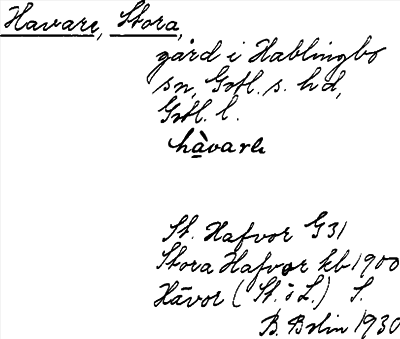 Havare, Stora,
gård i Hablingbo
sn, Gotl. s. hd,
Gotl. l.
hàvarε
St. Hafvor G 31
Stora Hafvor kb 1900
Hāvor (St. o L.) S.
B. Bolin 1930